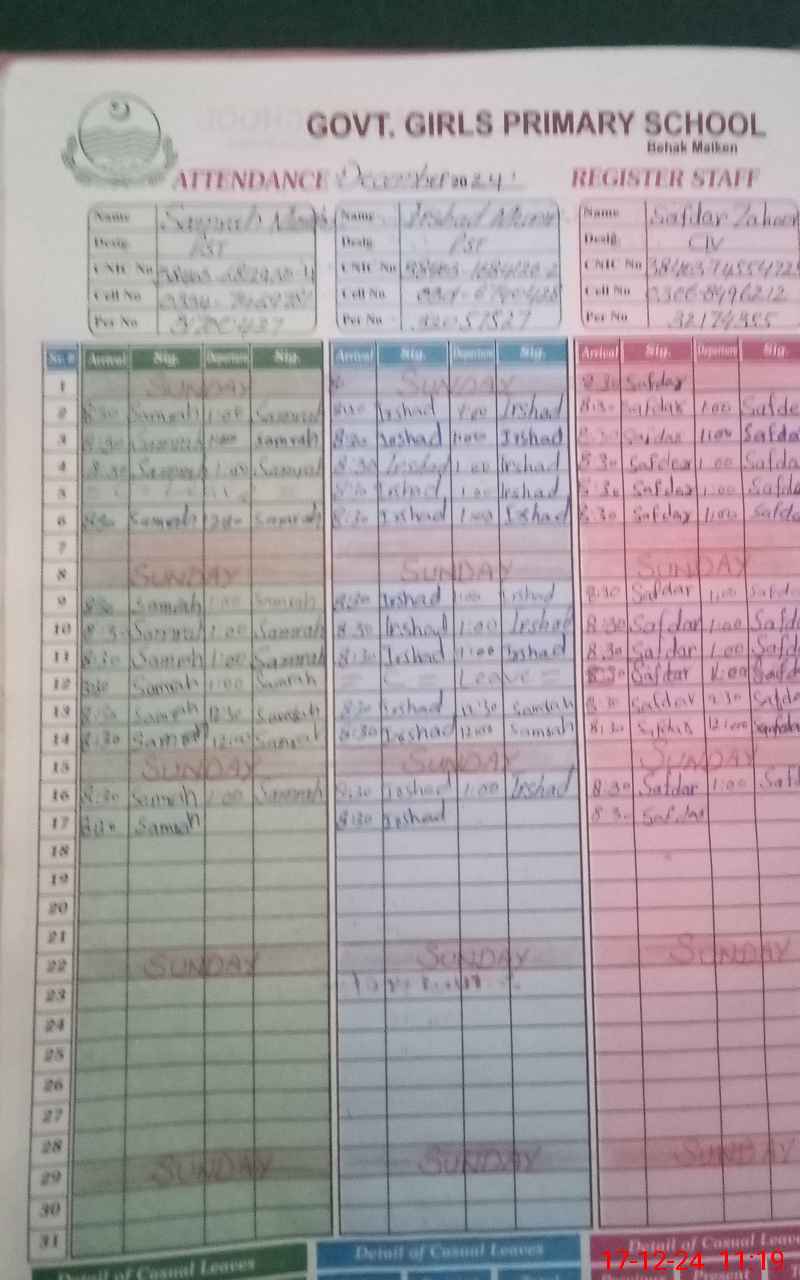 GOVT. GIRLS PRIMARY SCHOOL
Behak Maiken
ATTENDANCE December 2024 REGISTER STAFF
Name Name Irshad Name Safdar Zahoor
Desig PST Desig PST Desig CIV
CNIC No CNIC No CNIC No
Cell No Cell No Cell No 0306-8496212
Per No Per No Per No
Nr. # Arrival Sig. Departure Sig. Arrival Sig. Departure Sig. Arrival Sig. Departure Sig.
1 SUNDAY SUNDAY 8:30 Safdar
2 8:30 Samrah 1:00 Samrah 8:30 Irshad 1:00 Irshad 8:30 Safdar 1:00 Safda
3 8:30 Samrah 1:00 Samrah 8:30 Irshad 1:00 Irshad 8:30 Safdar 1:00 Safda
4 8:30 Samrah 1:00 Samrah 8:30 Irshad 1:00 Irshad 8:30 Safdar 1:00 Safda
5 8:30 Irshad 1:00 Irshad 8:30 Safdar 1:00 Safda
6 8:30 Samrah Samrah 8:30 Irshad 1:00 Irshad 8:30 Safdar 1:00 Safda
7
8 SUNDAY SUNDAY SUNDAY
9 8:30 Samrah 1:00 Samrah 8:30 Irshad 1:00 Irshad 8:30 Safdar 1:00 Safda
10 8:30 Samrah 1:00 Samrah 8:30 Irshad 1:00 Irshad 8:30 Safdar 1:00 Safd
11 8:30 Samrah 1:00 Samrah 8:30 Irshad 1:00 Irshad 8:30 Safdar 1:00 Safd
12 8:30 Samrah 1:00 Samrah = C = Leave = 8:30 Safdar 1:00 Safd
13 8:30 Samrah 12:30 Samrah 8:30 Irshad 12:30 Samrah 8:30 Safdar 12:30 Safda
14 8:30 Samrah 12:00 Samrah 8:30 Irshad 12:00 Samrah 8:30 Safdar 12:00 Safda
15 SUNDAY SUNDAY SUNDAY
16 8:30 Samrah 1:00 Samrah 8:30 Irshad 1:00 Irshad 8:30 Safdar 1:00 Saf
17 8:30 Samrah 8:30 Irshad 8:30 Safdar
18
19
20
21
22 SUNDAY SUNDAY SUNDAY
23
24
25
26
27
28
29 SUNDAY SUNDAY SUNDAY
30
31
Detail of Casual Leaves Detail of Casual Leaves Detail of Casual Leave
17-12-24 11:19